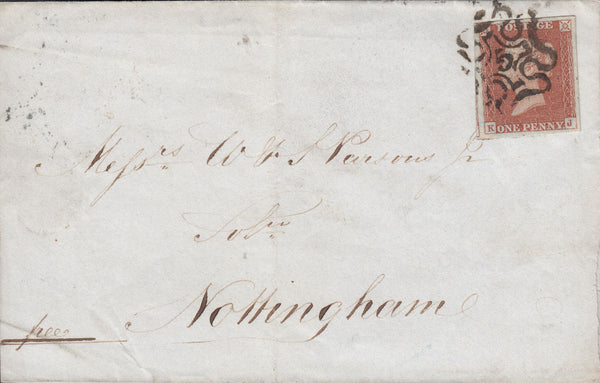 POSTAGE
5
K ONE PENNY J
Messrs W & S Parsons Jr
Solrs
Nottingham